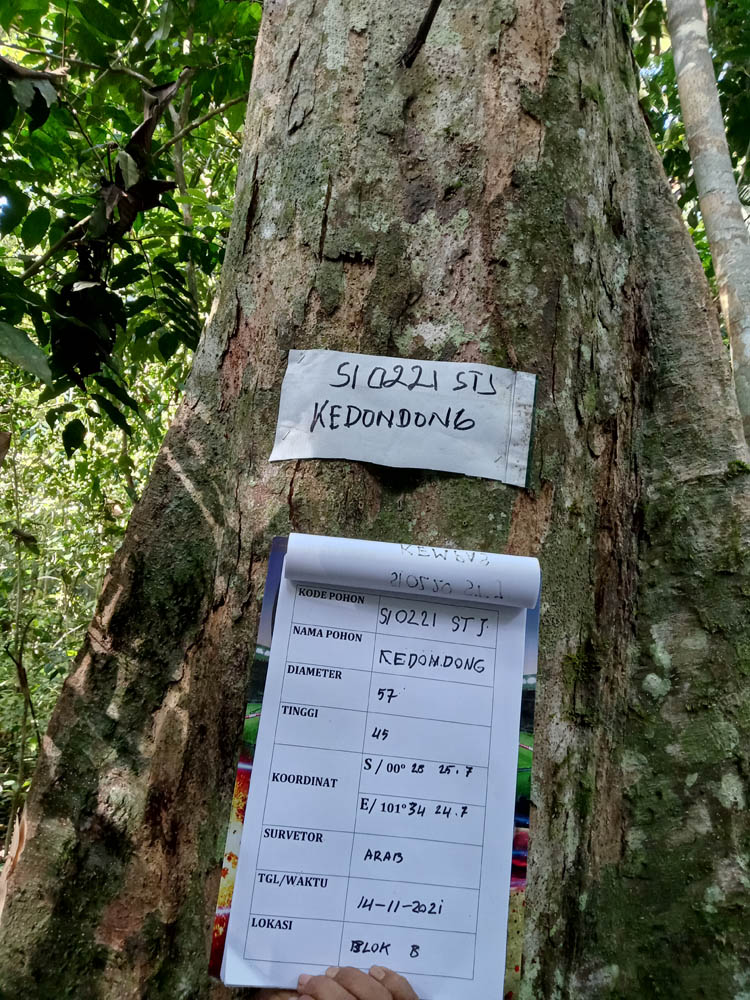 SI 0221 STJ
KEDONDONG
KODE POHON SI 0221 STJ.
NAMA POHON KEDONDONG
DIAMETER 57
TINGGI 45
KOORDINAT S/00° 28 25.7
E/101° 34 24.7
SURVETOR ARAB
TGL/WAKTU 14-11-2021
LOKASI BLOK B